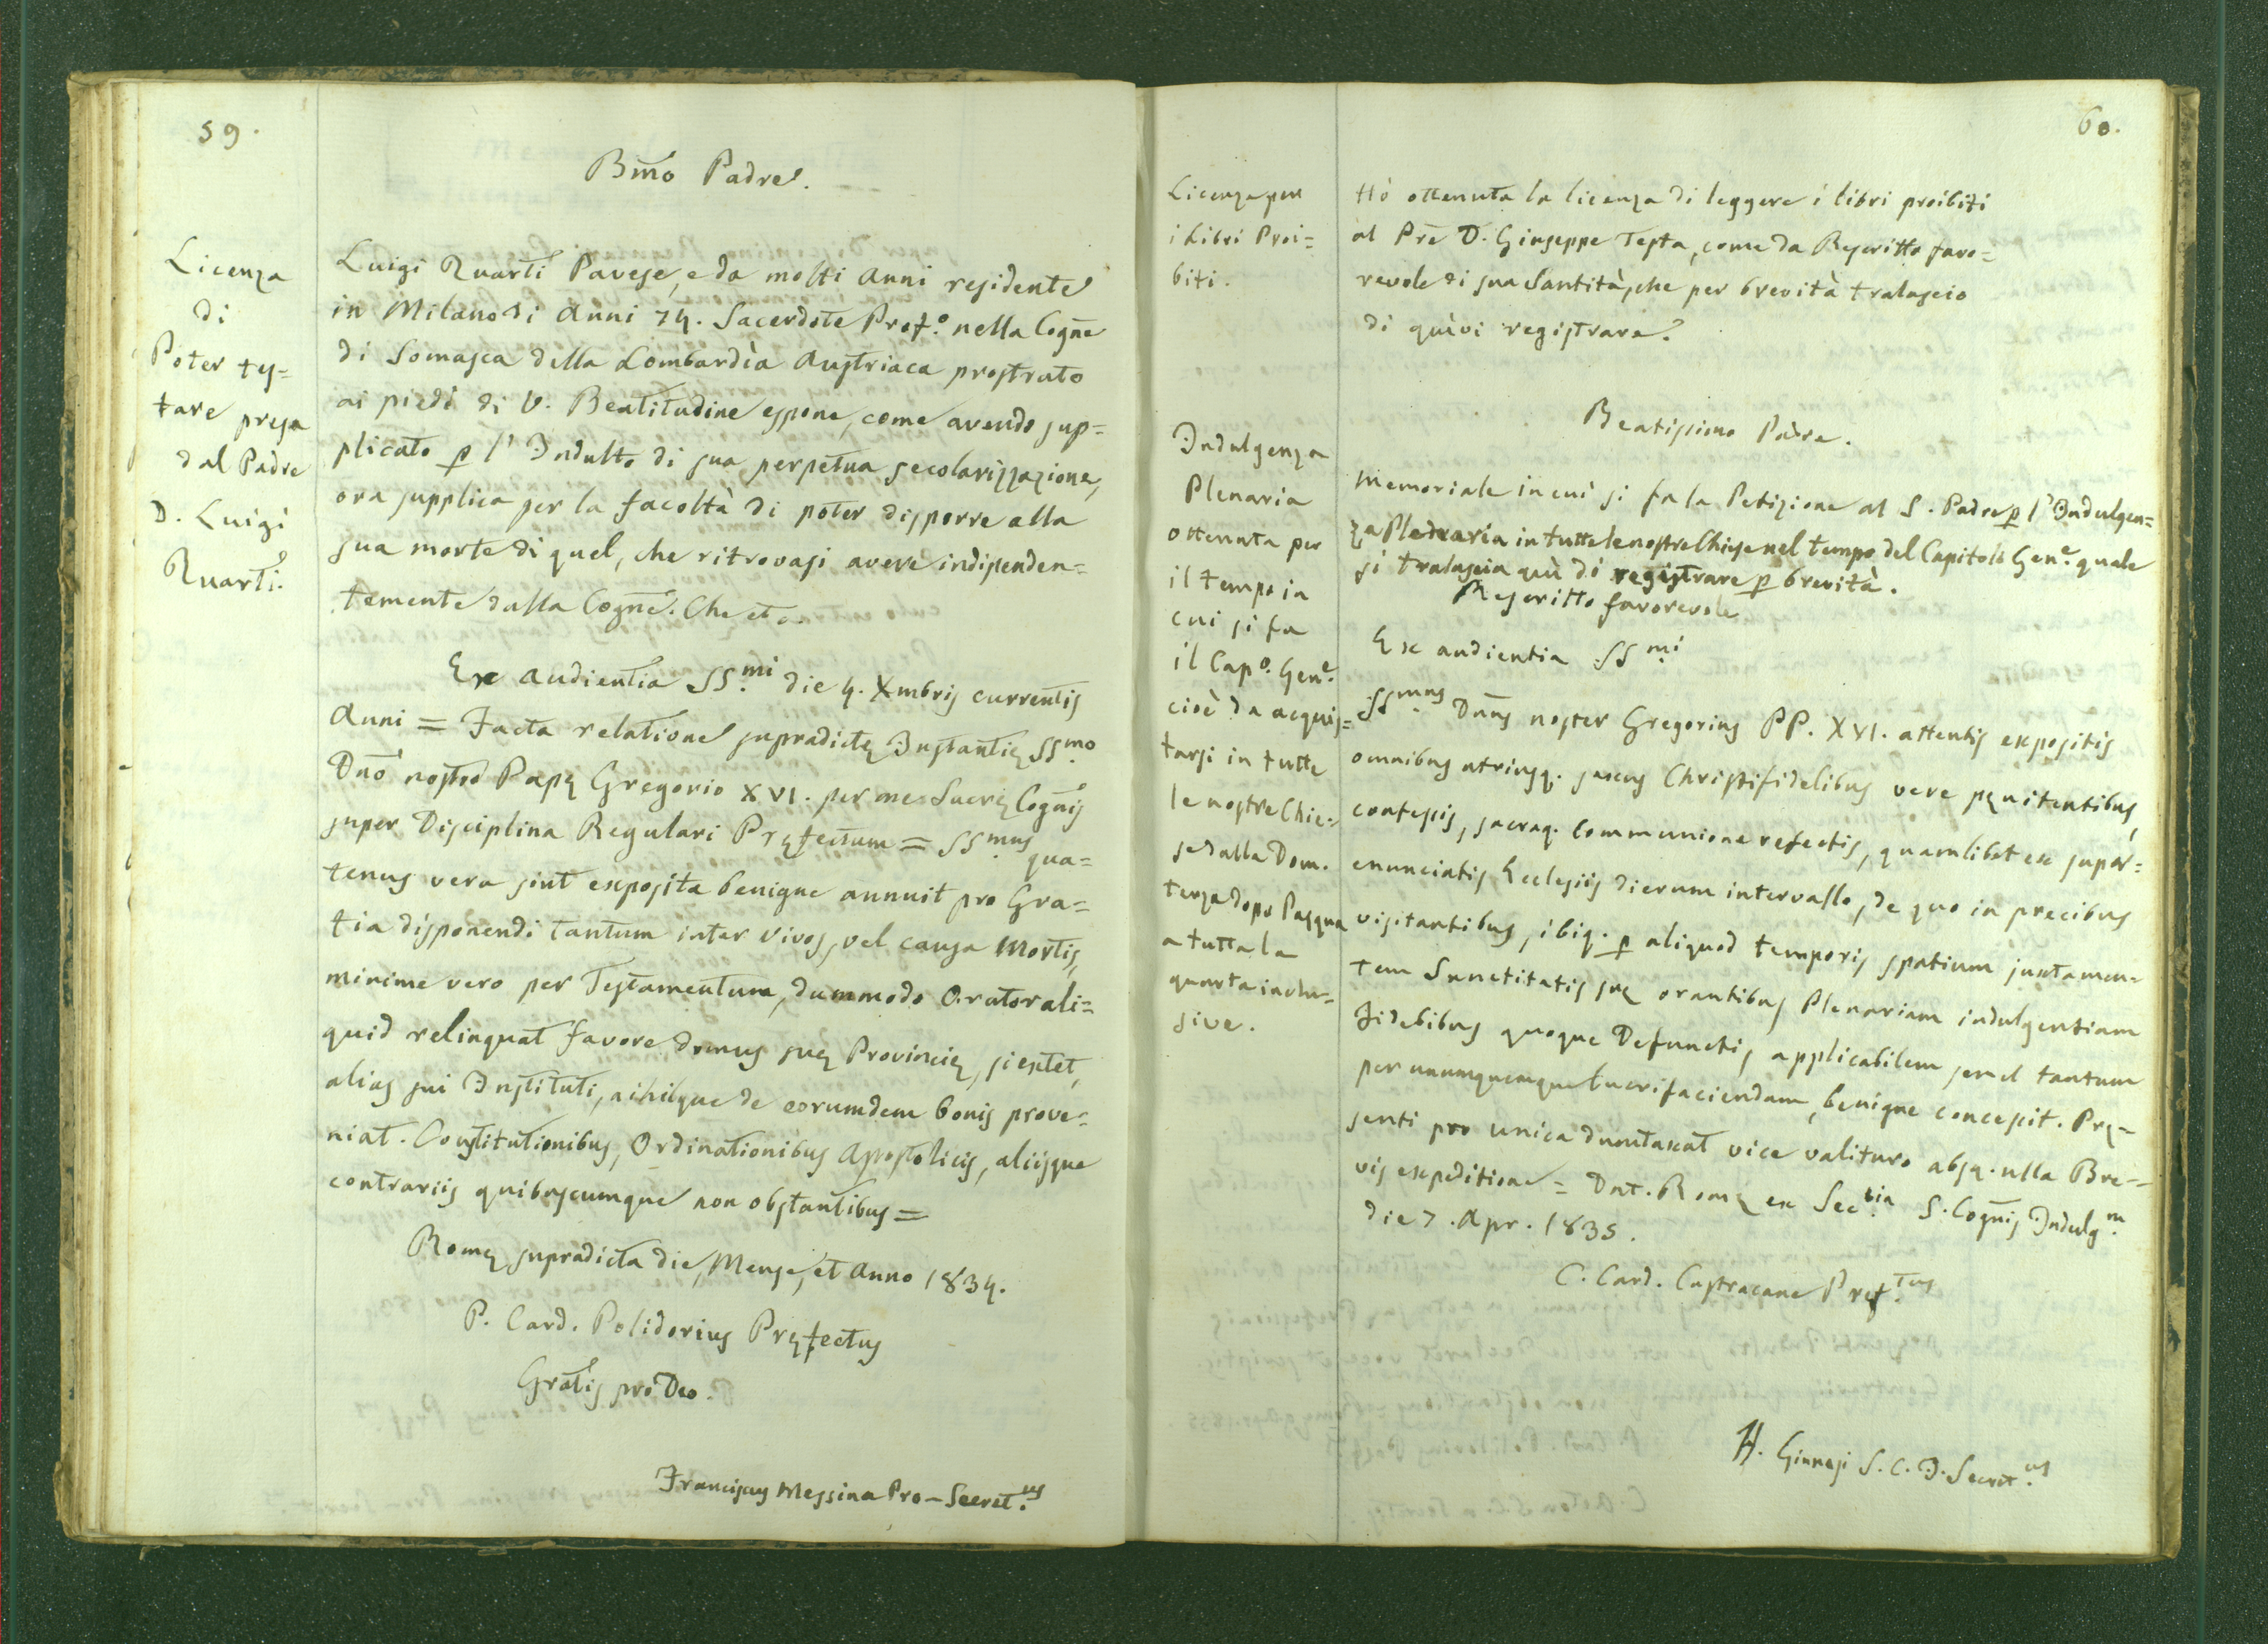 59.
Licenza
di
Poter tes=
tare presa
dal Padre
D. Luigi
Quarti.
Bm̃o Padre.
Luigi Quarti Pavese, e da molti anni residente
in Milano di Anni 74. Sacerdote Prof.º nella Cogñe
di Somasca della Lombardìa Austriaca prostrato
ai piedi di V. Beatitudine espone, come avendo sup=
plicato p l'Indulto di sua perpetua secolarizzazione,
ora supplica per la facoltà di poter disporre alla
sua morte di quel, che ritrovasi avere indipenden=
temente dalla Cogñe. Che etc.
Ex audientia SS.mi die 4. Xmbris currentis
Anni = Facta relatione supradictę Instantię SS.mo
Dño nostro Papę Gregorio XVI. per me Sacrę Cogñis
super Disciplina Regulari Pręfectum = SS.mus qua=
tenus vera sint exposita benigne annuit pro Gra=
tia disponendi tantum inter vivos, vel causa Mortis,
minime vero per Testamentum, dummodo Orator ali=
quid relinquat favore domus suę Provincię, si extet,
alias sui Instituti, nihilque de eorumdem bonis prove=
niat. Constitutionibus, Ordinationibus Apostolicis, aliisque
contrariis quibuscumque non obstantibus =
Romę supradicta die, Mense, et Anno 1834.
P. Card. Polidorius Pręfectus
Gratis pro Deo.
Franciscus Messina Pro-Secret.us
60.
Licenza per
i Libri Proi=
biti.
Hò ottenuta la licenza di leggere i libri proibiti
al Prẽ D. Giuseppe Testa, come da Rescritto favo=
revole di sua Santità, che per brevità tralascio
di quivi registrare.
Indulgenza
Plenaria
ottenuta per
il tempo in
cui si fa
il Cap.º Gen.e
cioè da acquis=
tarsi in tutte
le nostre Chie=
se dalla Dom.
terza dopo Pasqua
a tutta la
quarta inclu=
sive.
Beatissimo Padre.
Memoriale in cui si fa la Petizione al S. Padre p l'Indulgen=
za Plenaria in tutte le nostre Chiese nel tempo del Capitolo Gen.e quale
si tralascia quì di registrare p brevità.
Rescritto favorevole
Ex audientia SS.mi
SS.mus Dñus noster Gregorius PP. XVI. attentis expositis
omnibus utriusq. sexus Christifidelibus vere pęnitentibus,
confessis, sacraq. Communione refectis, quamlibet ex super=
enunciatis Ecclesiis dierum intervallo, de quo in precibus
visitantibus, ibiq. p aliquod temporis spatium juxta men=
tem Sanctitatis suę orantibus Plenariam indulgentiam
Fidelibus quoque Defunctis applicabilem semel tantum
per unumquemque lucrifaciendam, benigne concessit. Prę=
senti pro unica dumtaxat vice valituro absq. ulla Bre=
vis expeditione = Dat. Romę ex Sec.ria S. Cogñis Indulg.m
die 7. Apr. 1835.
C. Card. Castracane Pręf.tus
H. Ginnasi S. C. I. Secret.us